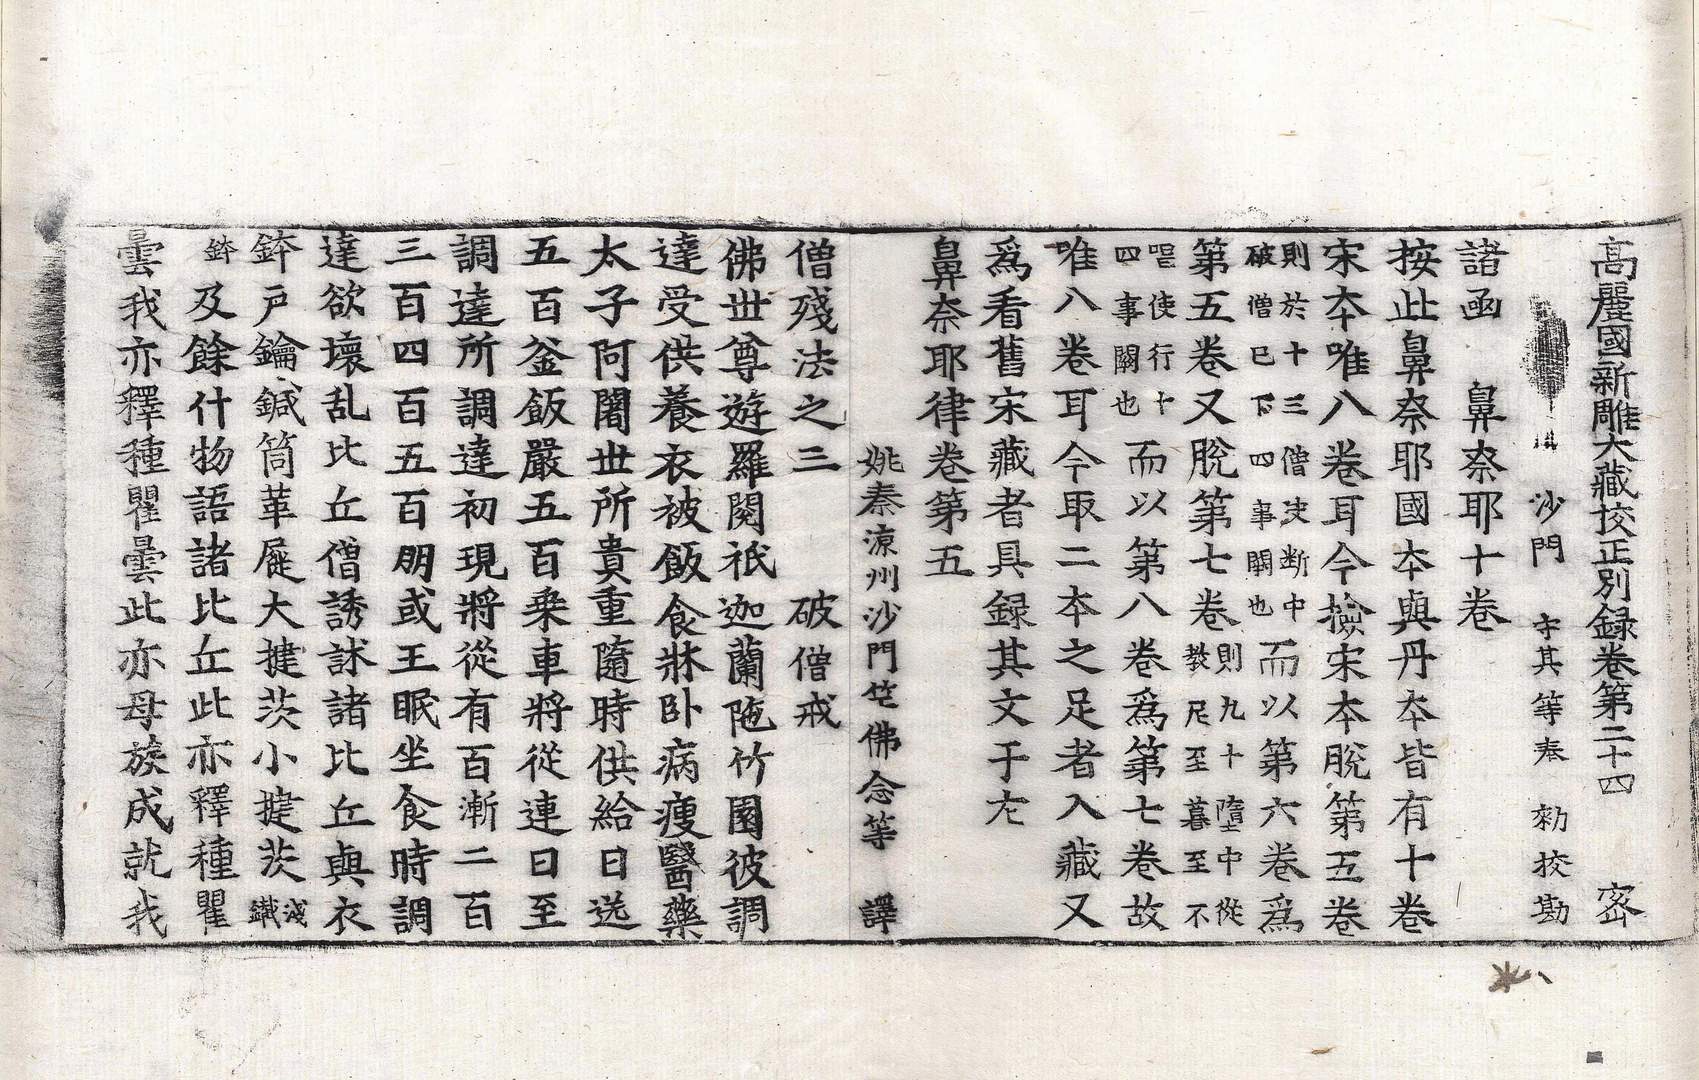 高麗國新雕大藏挍正別録卷第二十四　密
沙門　守其等奉　勑挍勘
諸函　鼻奈耶十卷
按此鼻奈耶國夲與丹夲皆有十卷
宋夲唯八卷耳今撿宋夲脫第五卷
則於十三僧法断中破僧已下四事闕也而以第六卷爲
第五卷又脫第七卷則九十墮中從教尼至暮至不
唱使行十四事闕也而以第八卷爲第七卷故
唯八卷耳今取二夲之足者入藏又
爲看舊宋藏者具録其文于左
鼻奈耶律卷第五
姚秦涼州沙門竺佛念等　譯
僧殘法之三　破僧戒
佛世尊遊羅閱祇迦蘭陁竹園彼調
達受供養衣被飯食牀卧病瘦醫藥
太子阿闍世所貴重隨時供給日送
五百釜飯嚴五百乗車將從連日至
調達所調達初現將從有百漸二百
三百四百五百朋或王眠坐食時調
達欲壞乱比丘僧誘訹諸比丘與衣
鉢戶鑰鍼筒革屣大揵茨小揵茨淺鐵
鉢及餘什物語諸比丘此亦釋種瞿
曇我亦釋種瞿曇此亦母族成就我